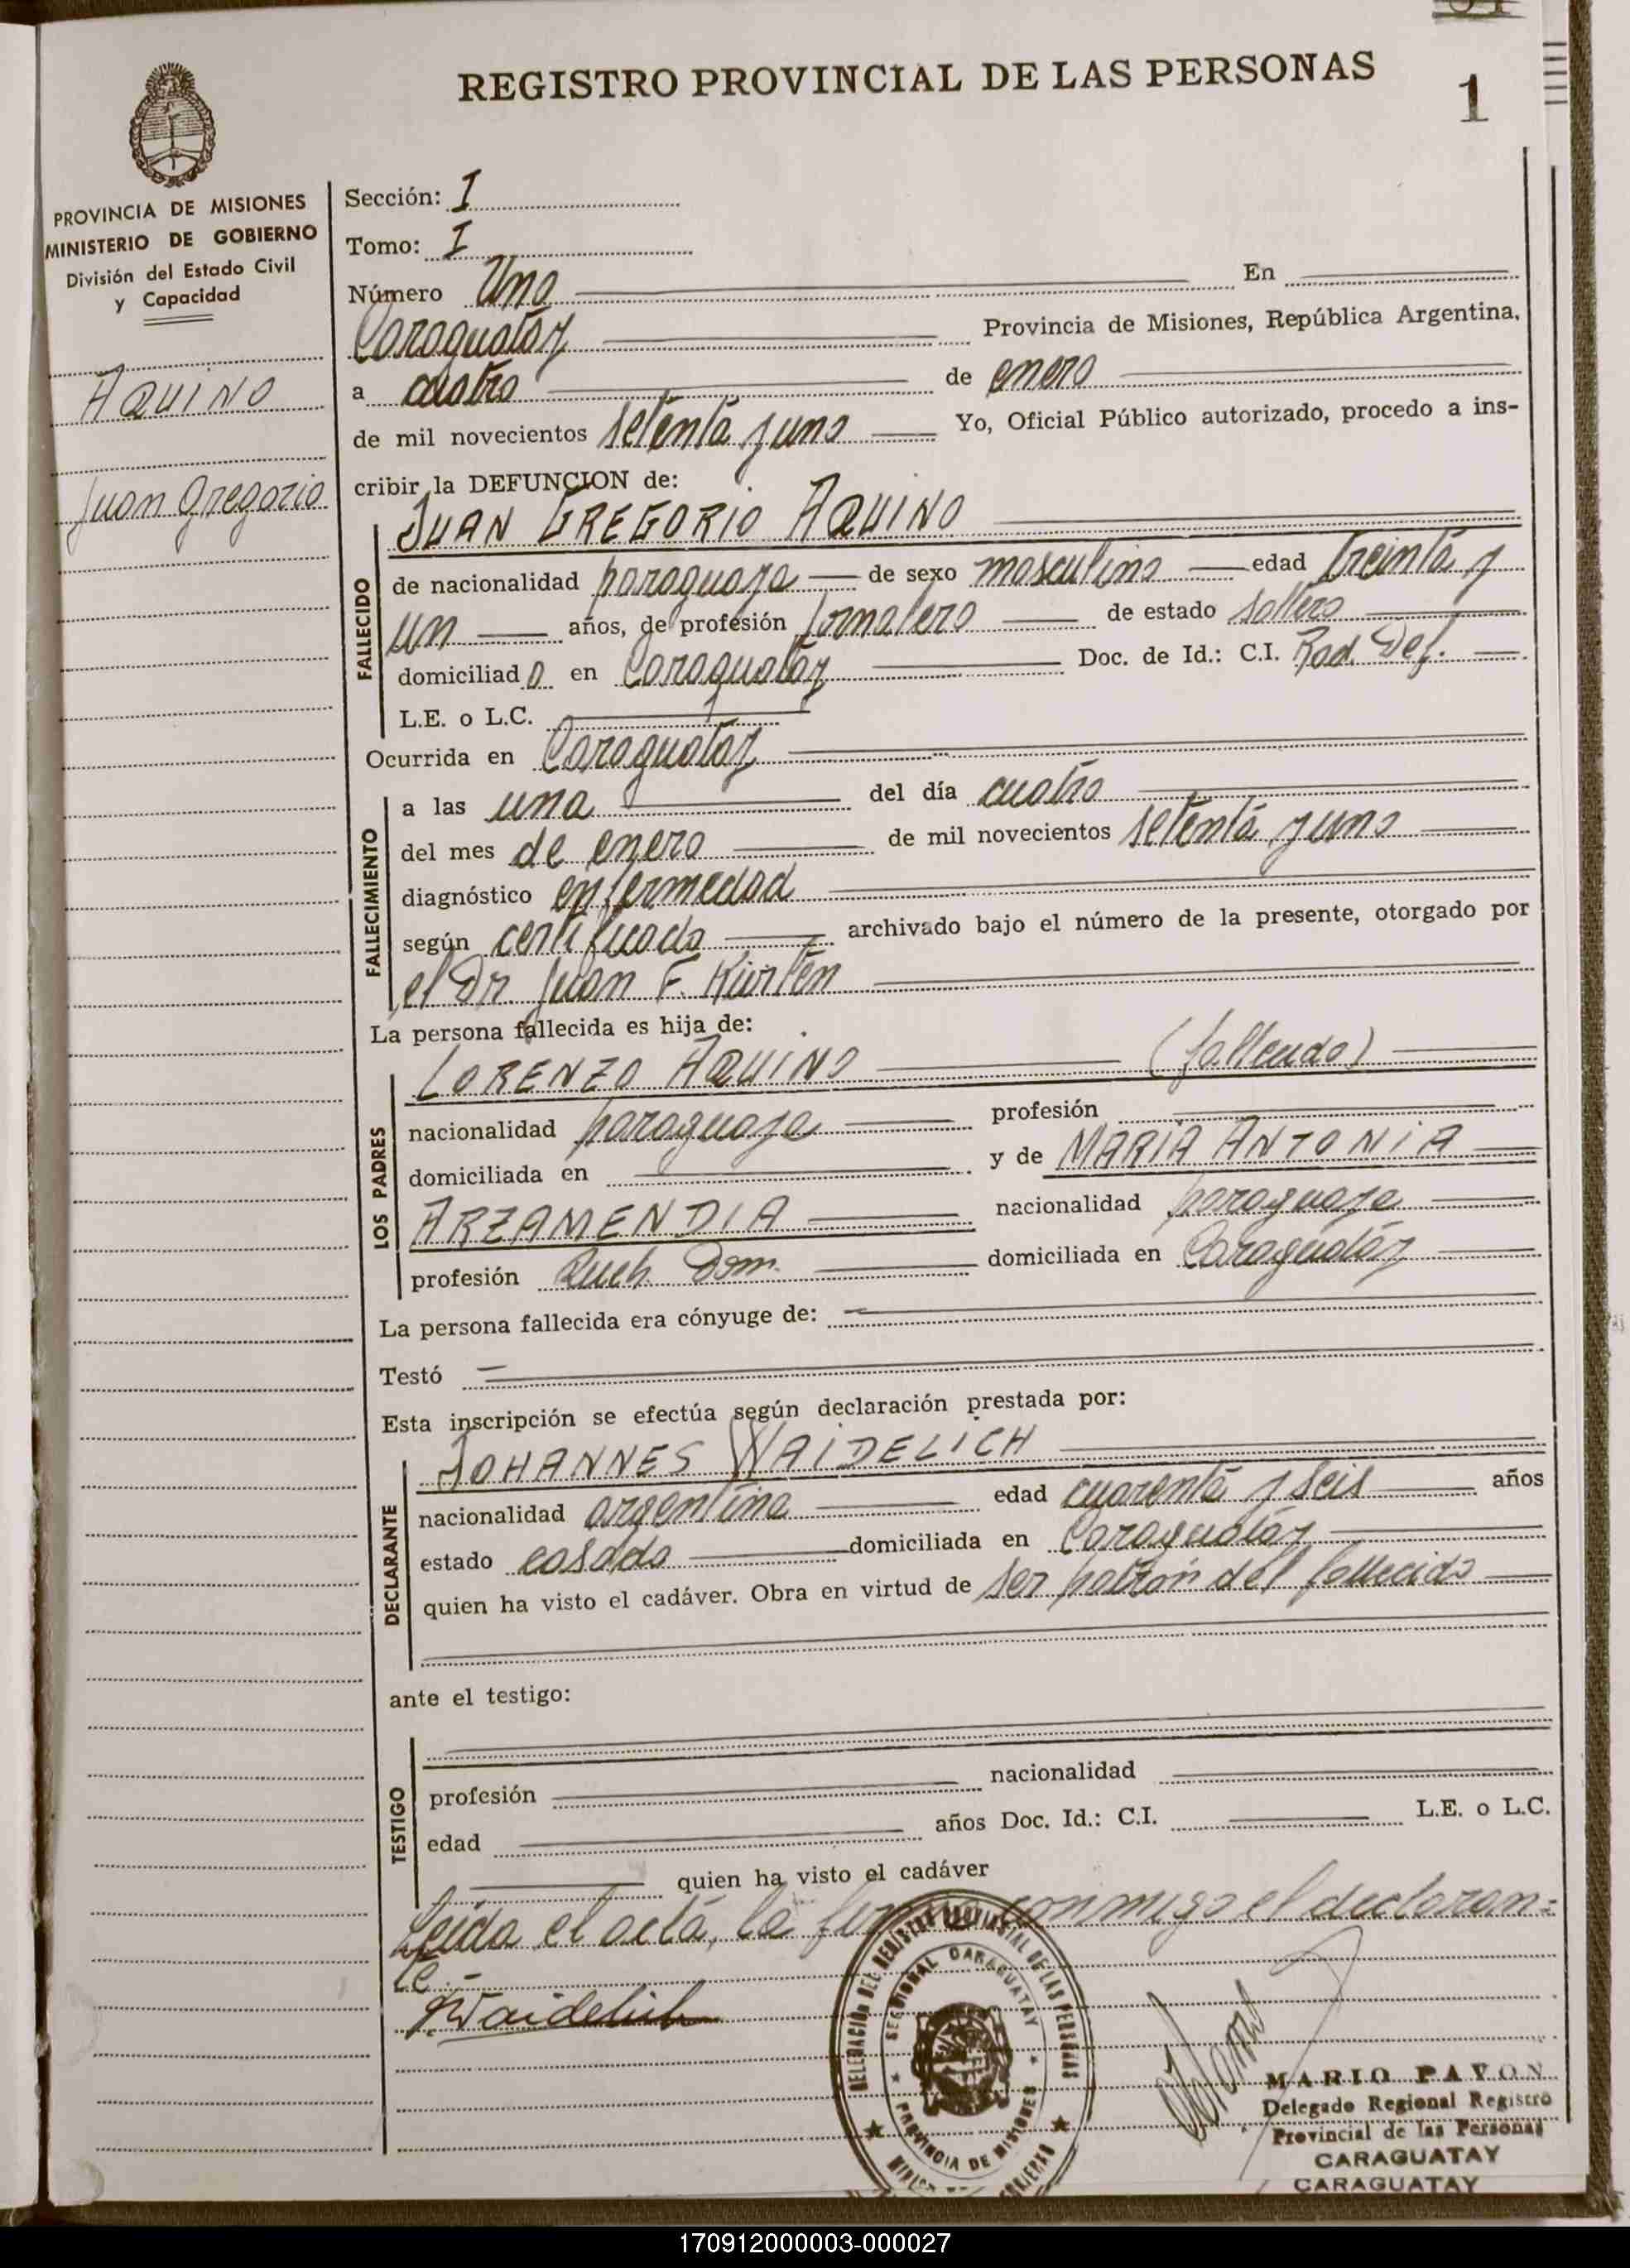 REGISTRO PROVINCIAL DE LAS PERSONAS
1
PROVINCIA DE MISIONES
MINISTERIO DE GOBIERNO
División del Estado Civil
y Capacidad
AQUINO
Juan Gregorio
Sección: I
Tomo: I
Número Uno En
Caraguatay Provincia de Misiones, República Argentina,
a cuatro de enero
de mil novecientos setenta y uno Yo, Oficial Público autorizado, procedo a ins-
cribir la DEFUNCION de:
JUAN GREGORIO AQUINO
FALLECIDO
de nacionalidad paraguaya de sexo masculino edad treinta y
un años, de profesión Jornalero de estado soltero
domiciliado en Caraguatay Doc. de Id.: C.I. Rad. Def.
L.E. o L.C.
Ocurrida en Caraguatay
FALLECIMIENTO
a las una del día cuatro
del mes de enero de mil novecientos setenta y uno
diagnóstico enfermedad
según certificado archivado bajo el número de la presente, otorgado por
el Dr. Juan F. Kürten
La persona fallecida es hija de:
LOS PADRES
LORENZO AQUINO (fallecido)
nacionalidad paraguaya profesión
domiciliada en y de MARIA ANTONIA
ARZAMENDIA nacionalidad paraguaya
profesión Queh. Dom. domiciliada en Caraguatay
La persona fallecida era cónyuge de:
Testó
Esta inscripción se efectúa según declaración prestada por:
DECLARANTE
JOHANNES WAIDELICH
nacionalidad argentina edad cuarenta y seis años
estado casado domiciliada en Caraguatay
quien ha visto el cadáver. Obra en virtud de ser patrón del fallecido
ante el testigo:
TESTIGO
profesión nacionalidad
edad años Doc. Id.: C.I. L.E. o L.C.
quien ha visto el cadáver
Leída el acta, la firma conmigo el declaran=
te.-
Waidelich
DELEGACIÓN DEL REGISTRO PROVINCIAL DE LAS PERSONAS
SECCIONAL CARAGUATAY
PROVINCIA DE MISIONES
MARIO PAVON
Delegado Regional Registro
Provincial de las Personas
CARAGUATAY
CARAGUATAY
170912000003-000027